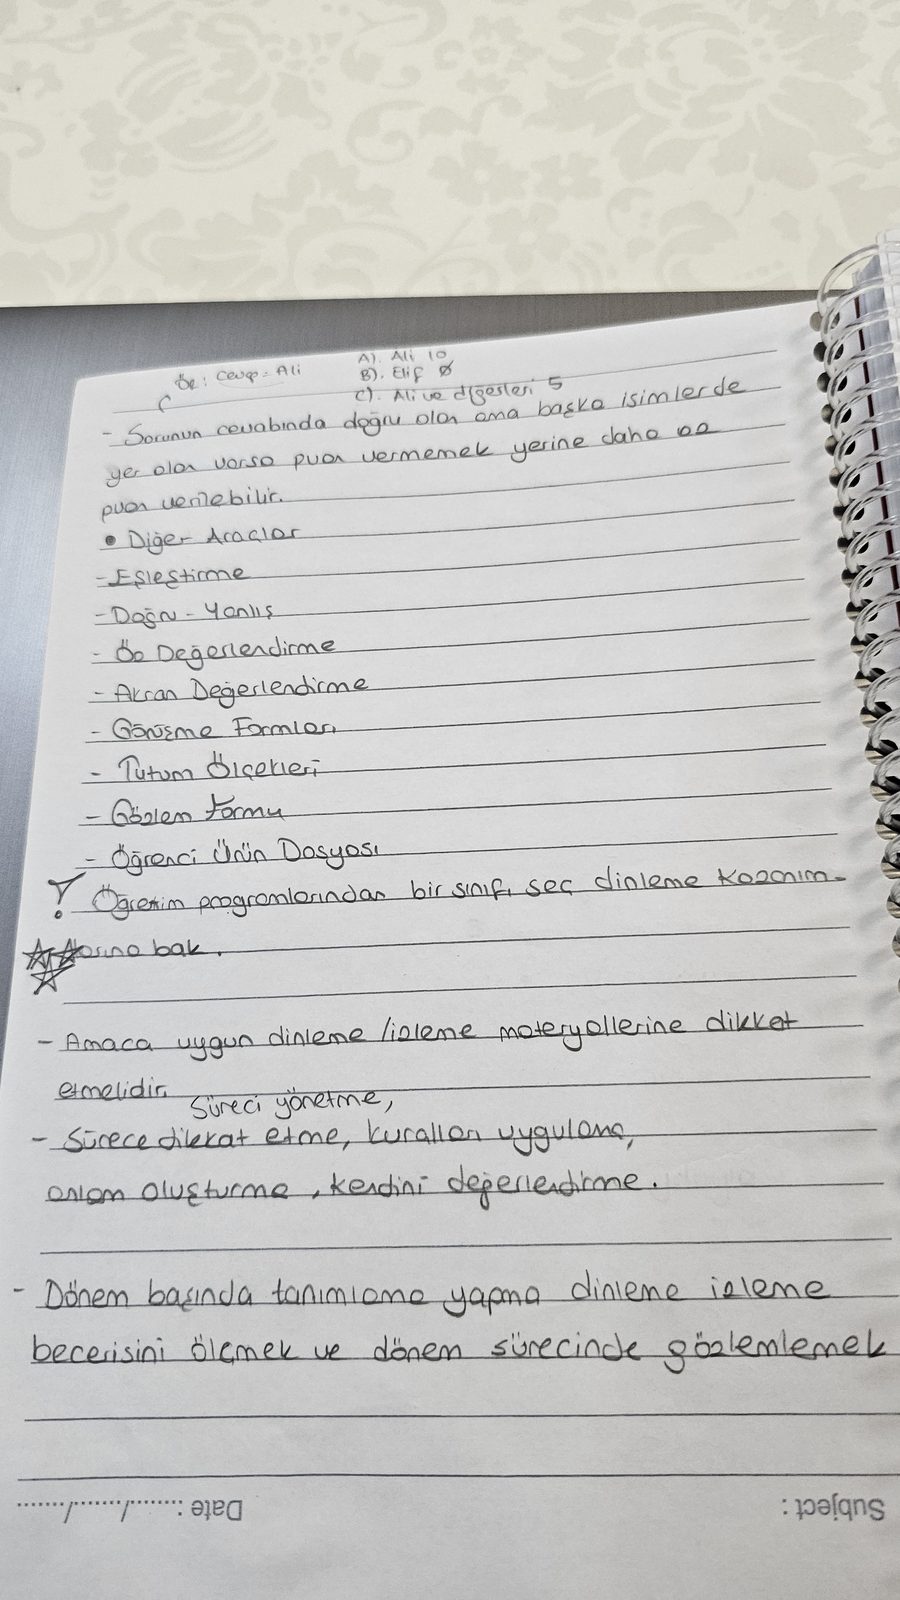 Ör: Cevap = Ali
A). Ali 10
B). Elif Ø
C). Ali ve diğerleri 5
- Sorunun cevabında doğru olan ama başka isimlerde
yer alan varsa puan vermemek yerine daha az
puan verilebilir.
• Diğer Araçlar
- Eşleştirme
- Doğru - Yanlış
- Öz Değerlendirme
- Akran Değerlendirme
- Görüşme Formları
- Tutum Ölçekleri
- Gözlem Formu
- Öğrenci Ürün Dosyası
! Öğretim programlarından bir sınıfı seç dinleme kazanım-
larına bak.
- Amaca uygun dinleme /izleme materyallerine dikkat
etmelidir.
Süreci yönetme,
- Sürece dikkat etme, kuralları uygulama,
anlam oluşturma, kendini değerlendirme.
- Dönem başında tanımlama yapma dinleme izleme
becerisini ölçmek ve dönem sürecinde gözlemlemek
Subject :
Date : ......./......./.......